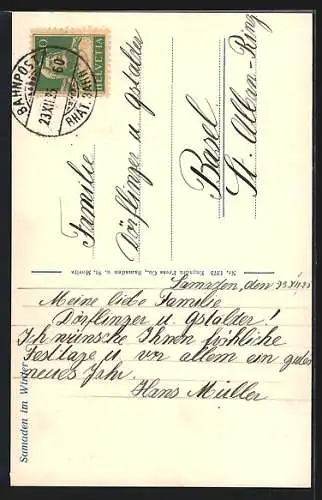 BAHNPOST
23.XII.25
60
RHÄT. BAHN
HELVETIA
Familie
Dörflinger u. Gstalder
Basel
St. Alban-Ring
Nr. 1275 Engadin Press Co., Samaden u. St. Moritz
Samaden im Winter
Samaden, den 23.XII.25
Meine liebe Familie
Dörflinger u. Gstalder!
Ich wünsche Ihnen fröhliche
Festtage u. vor allem ein gutes
neues Jahr.
Hans Müller